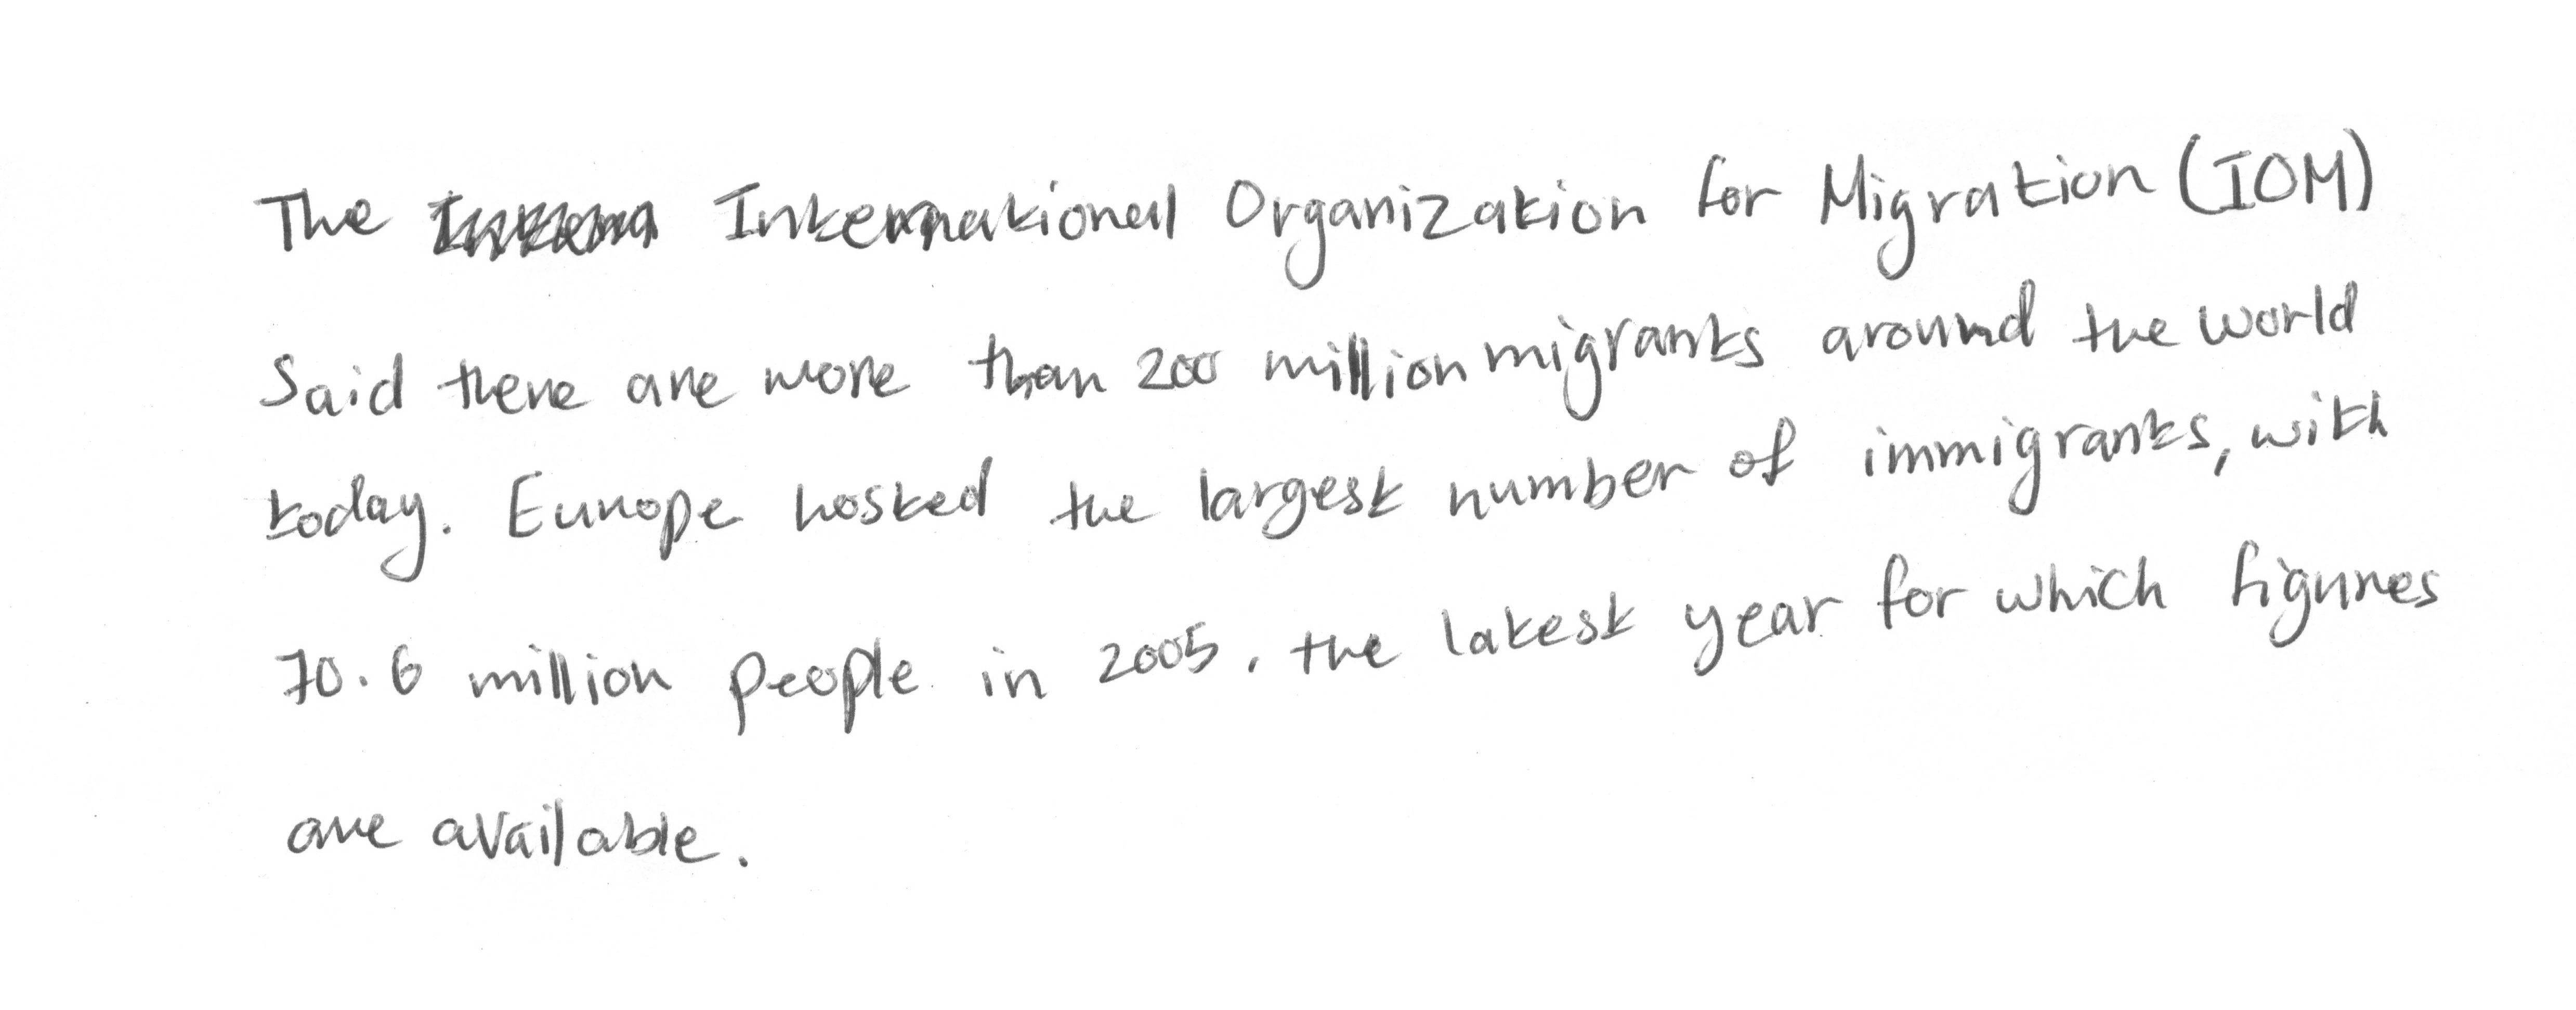 The International Organization for Migration (IOM)
Said there are more than 200 million migrants around the world
today. Europe hosted the largest number of immigrants, with
70.6 million people in 2005, the latest year for which figures
are available.